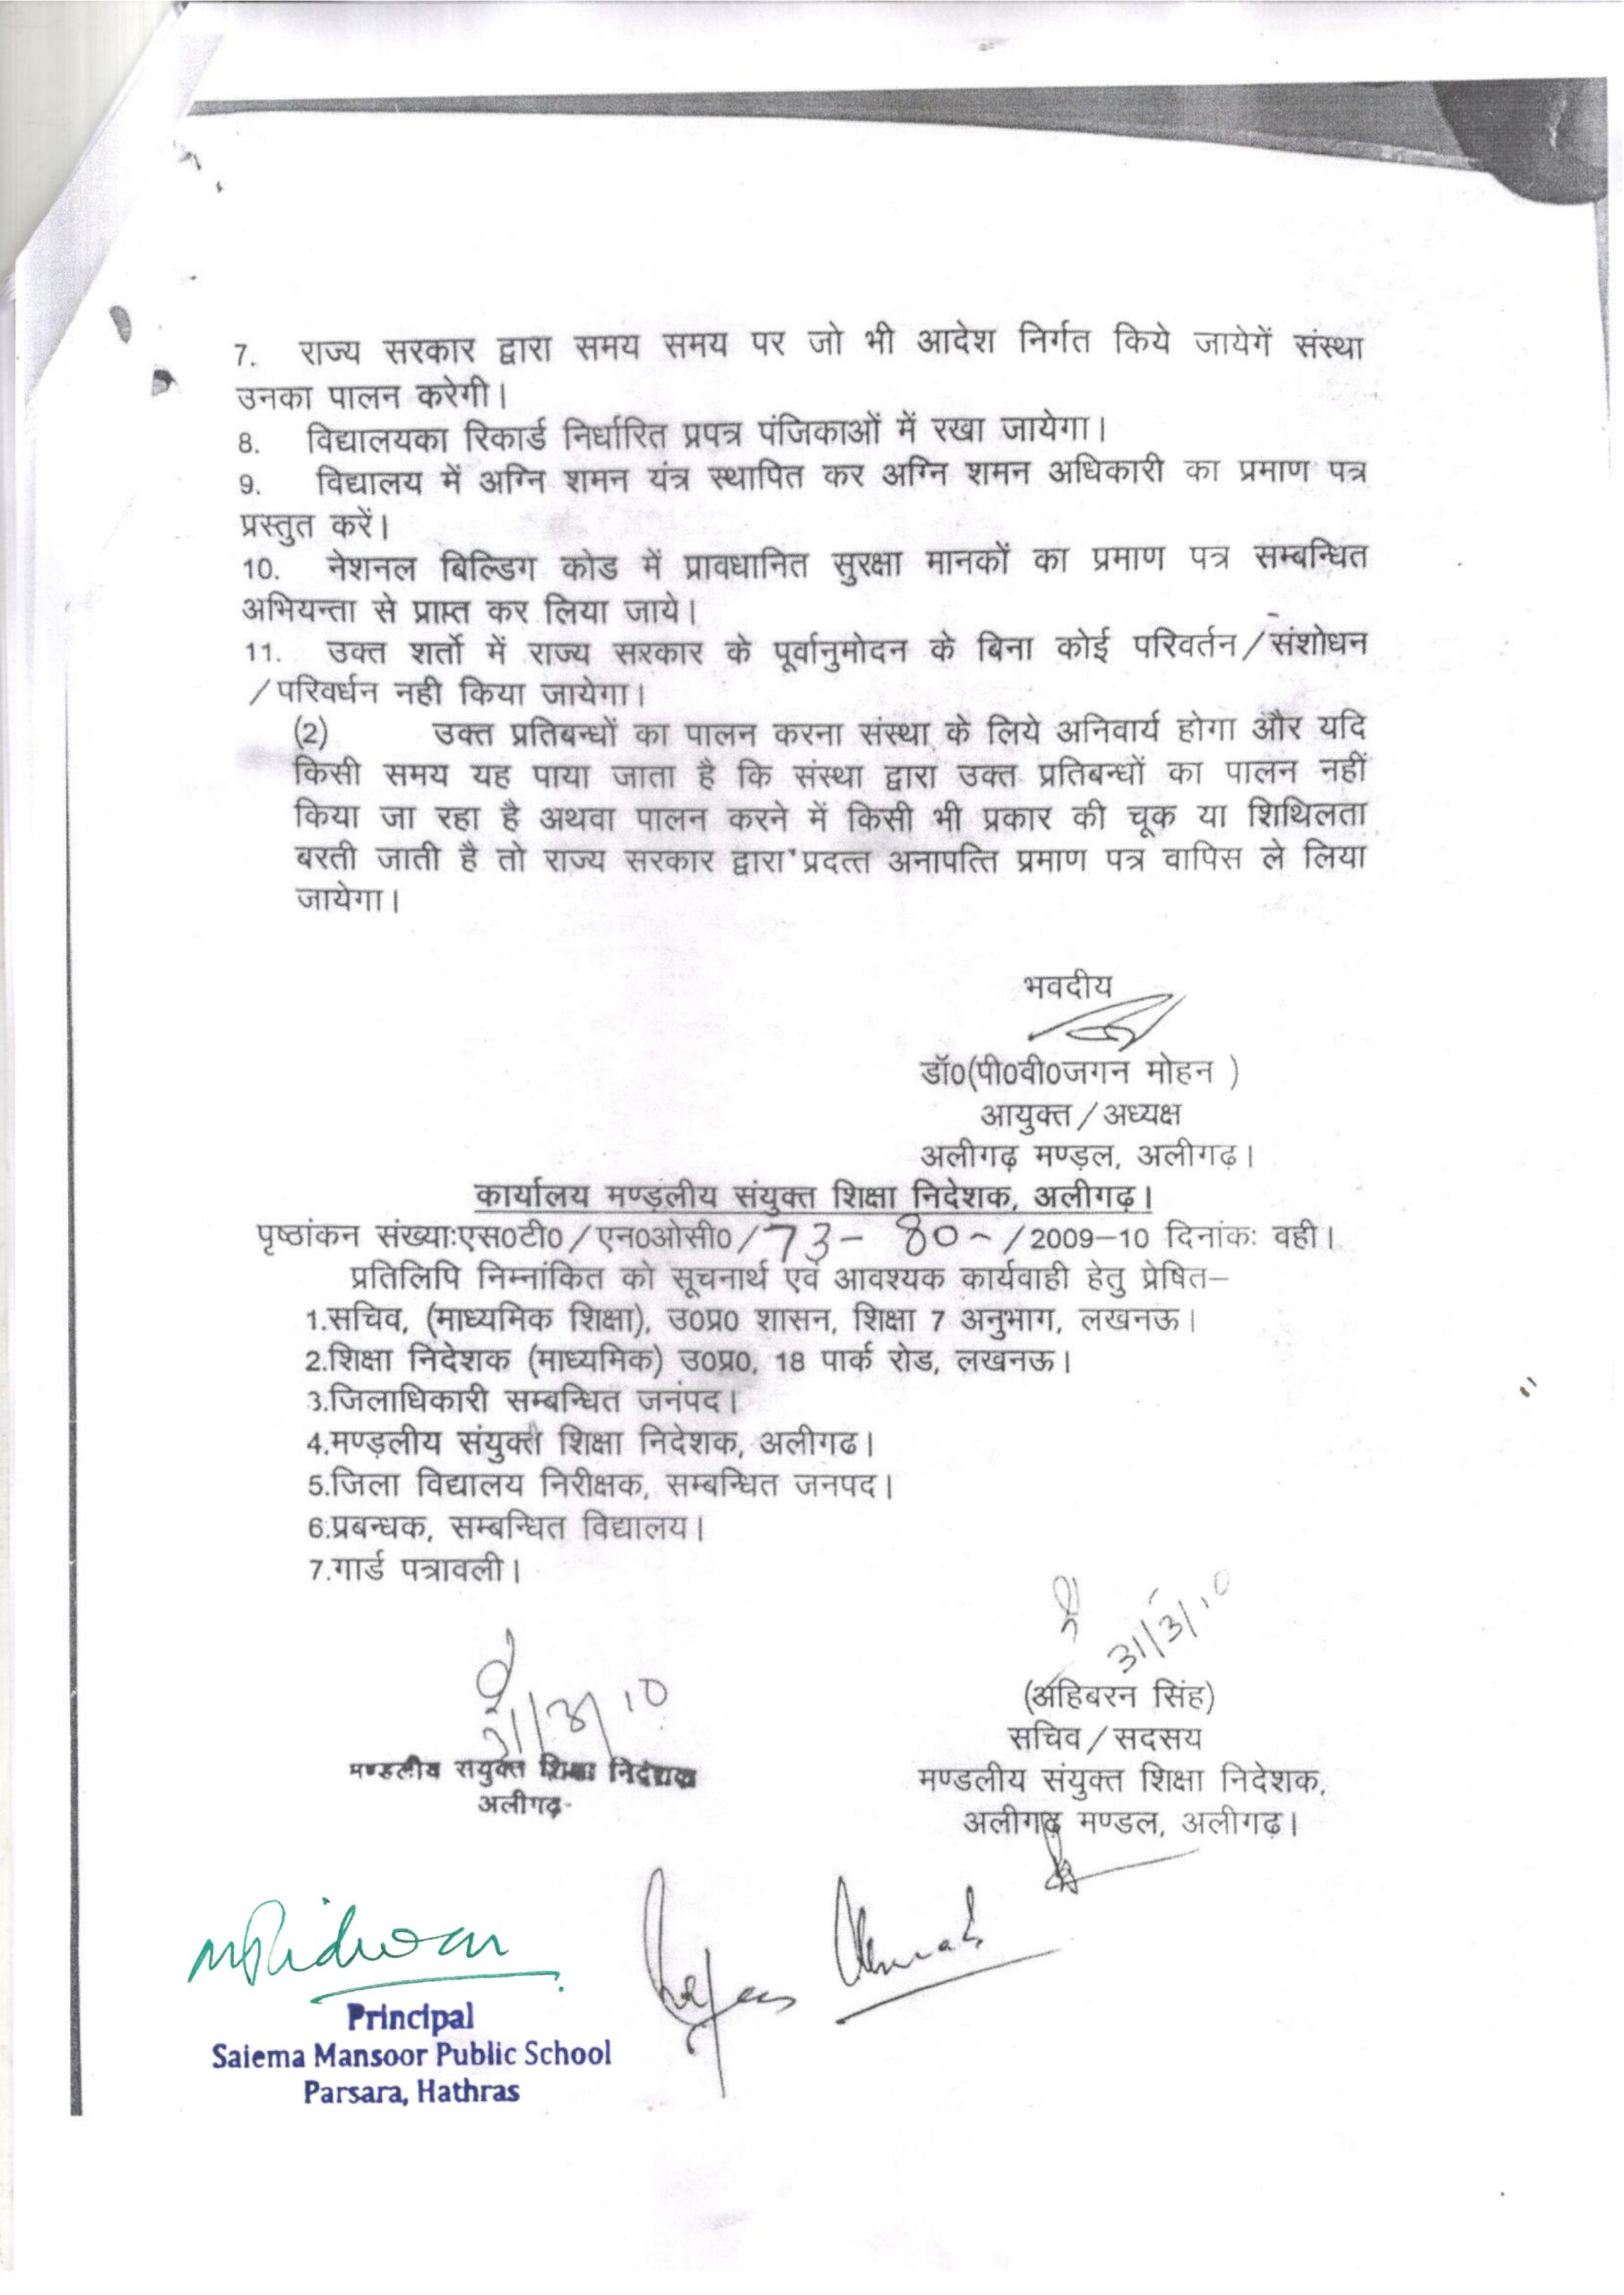 7. राज्य सरकार द्वारा समय समय पर जो भी आदेश निर्गत किये जायेगें संस्था
उनका पालन करेगी।
8. विद्यालयका रिकार्ड निर्धारित प्रपत्र पंजिकाओं में रखा जायेगा।
9. विद्यालय में अग्नि शमन यंत्र स्थापित कर अग्नि शमन अधिकारी का प्रमाण पत्र
प्रस्तुत करें।
10. नेशनल बिल्डिग कोड में प्रावधानित सुरक्षा मानकों का प्रमाण पत्र सम्बन्धित
अभियन्ता से प्राप्त कर लिया जाये।
11. उक्त शर्तो में राज्य सरकार के पूर्वानुमोदन के बिना कोई परिवर्तन/संशोधन
/परिवर्धन नही किया जायेगा।
(2) उक्त प्रतिबन्धों का पालन करना संस्था के लिये अनिवार्य होगा और यदि
किसी समय यह पाया जाता है कि संस्था द्वारा उक्त प्रतिबन्धों का पालन नहीं
किया जा रहा है अथवा पालन करने में किसी भी प्रकार की चूक या शिथिलता
बरती जाती है तो राज्य सरकार द्वारा प्रदत्त अनापत्ति प्रमाण पत्र वापिस ले लिया
जायेगा।
भवदीय
डॉ0(पी0वी0जगन मोहन )
आयुक्त/अध्यक्ष
अलीगढ़ मण्ड़ल, अलीगढ़।
कार्यालय मण्ड़लीय संयुक्त शिक्षा निदेशक, अलीगढ़।
पृष्ठांकन संख्याःएस0टी0/एन0ओसी0/73-80-/2009-10 दिनांकः वही।
प्रतिलिपि निम्नांकित को सूचनार्थ एवं आवश्यक कार्यवाही हेतु प्रेषित-
1.सचिव, (माध्यमिक शिक्षा), उ0प्र0 शासन, शिक्षा 7 अनुभाग, लखनऊ।
2.शिक्षा निदेशक (माध्यमिक) उ0प्र0, 18 पार्क रोड, लखनऊ।
3.जिलाधिकारी सम्बन्धित जनपद।
4.मण्ड़लीय संयुक्त शिक्षा निदेशक, अलीगढ।
5.जिला विद्यालय निरीक्षक, सम्बन्धित जनपद।
6.प्रबन्धक, सम्बन्धित विद्यालय।
7.गार्ड पत्रावली।
31/3/10
31/3/10
(अहिबरन सिंह)
सचिव/सदसय
मण्डलीय संयुक्त शिक्षा निदेशक,
अलीगढ़ मण्डल, अलीगढ़।
मण्डलीय संयुक्त शिक्षा निदेशक
अलीगढ़
MRidwan
Principal
Saiema Mansoor Public School
Parsara, Hathras